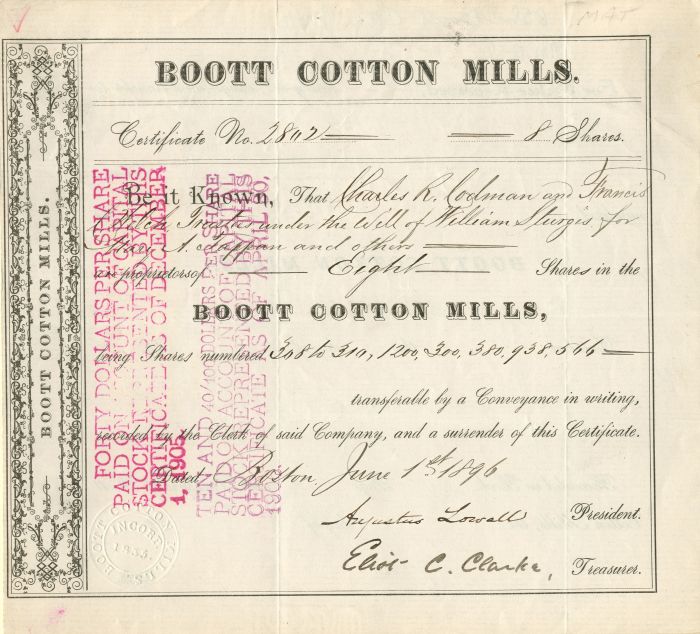 MAT
BOOTT COTTON MILLS.
Certificate No. 2802 8 Shares.
Be it Known, That Charles R. Codman and Francis
Trustees under the Will of William Sturgis for
Mary A. Tappan and others
are proprietors of Eight Shares in the
BOOTT COTTON MILLS,
being Shares numbered 308 to 310, 1200, 300, 380, 938, 566
transferable by a Conveyance in writing,
recorded by the Clerk of said Company, and a surrender of this Certificate.
Dated Boston, June 1st 1896
Augustus Lowell President.
Eliot C. Clarke, Treasurer.
BOOTT COTTON MILLS.
FORTY DOLLARS PER SHARE
PAID ON ACCOUNT OF CAPITAL
STOCK REPRESENTED BY THIS
CERTIFICATE OF DECEMBER
1, 1905
TEN AND 40/100 DOLLARS PER SHARE
PAID ON ACCOUNT OF CAPITAL
STOCK REPRESENTED BY THIS
CERTIFICATE AS OF APRIL 10,
BOOTT COTTON MILLS
INCORP.
1835.